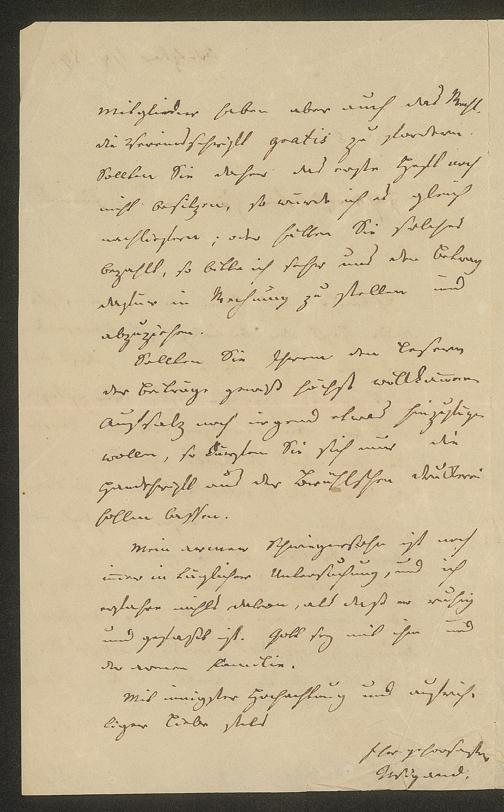 Mitglieder haben aber auch das Recht,
die Vereinsschrift gratis zu fordern.
Sollten Sie daher das erste Heft noch
nicht besitzen, so würde ich es gleich
nachliefern; oder hätten Sie solches
bezahlt, so bitte ich sehr uns den Betrag
dafür in Rechnung zu stellen und
abzuziehen.
Sollten Sie Ihrem den Lesern
der Beiträge gewiß höchst willkommenen
Aufsatz noch irgend etwas hinzufügen
wollen, so dürften Sie sich nur die
Handschrift aus der Brühlschen Druckerei
holen lassen.
Mein armer Schwiegersohn ist noch
immer in täglicher Untersuchung, und ich
erfahre nichts davon, als daß er ruhig
und gefaßt ist. Gott sey mit ihm und
der armen Familie.
Mit innigster Hochachtung und aufrich-
tiger Liebe stets
Ihr gehorsamster
Wigand.